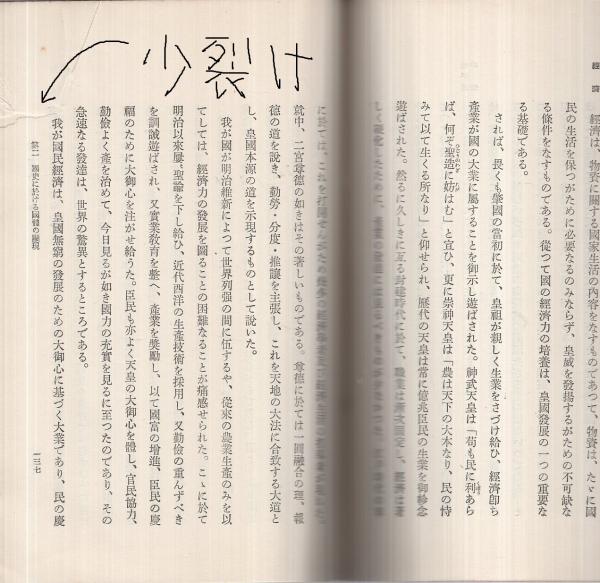 少裂け
經濟
經濟は、物資に關する國家生活の內容をなすものであつて、物資は、たゞに國
民の生活を保つがために必要なるのみならず、皇威を發揚するがための不可缺な
る條件をなすものである。從つて國の經濟力の培養は、皇國發展の一つの重要な
る基礎である。
されば、畏くも肇國の當初に於て、皇祖が親しく生業をさづけ給ひ、經濟卽ち
產業が國の大業に屬することを御示し遊ばされた。神武天皇は「苟も民に利あら
ば、何ぞ聖造に妨はむ」と宣ひ、更に崇神天皇は「農は天下の大本なり、民の恃
みて以て生くる所なり」と仰せられ、歷代の天皇は常に億兆臣民の生業を御軫念
遊ばされた。然るに久しきに亙る封建時代に於て、職業は漸次固定し、經濟は著
しく硬化したために、產業の發達には見る
に於ては、これを打開せんがための
就中、二宮尊德の如きはその著しいものである。尊德に於ては一圓融合の理、報
德の道を說き、勤勞・分度・推讓を主張し、これを天地の大法に合致する大道と
し、皇國本源の道を示現するものとして說いた。
我が國が明治維新によつて世界列强の間に伍するや、從來の農業生產のみを以
てしては、經濟力の發展を圖ることの困難なることが痛感せられた。こゝに於て
明治以來屢〻聖諭を下し給ひ、近代西洋の生產技術を採用し、又勤儉の重んずべき
を訓誡遊ばされ、又實業敎育を整へ、產業を獎勵し、以て國富の增進、臣民の慶
福のために大御心を注がせ給うた。臣民も亦よく天皇の大御心を體し、官民協力、
勤儉よく產を治めて、今日見るが如き國力の充實を見るに至つたのであり、その
急速なる發達は、世界の驚異とするところである。
我が國民經濟は、皇國無窮の發展のための大御心に基づく大業であり、民の慶
第二 國史に於ける國體の顯現
一三七